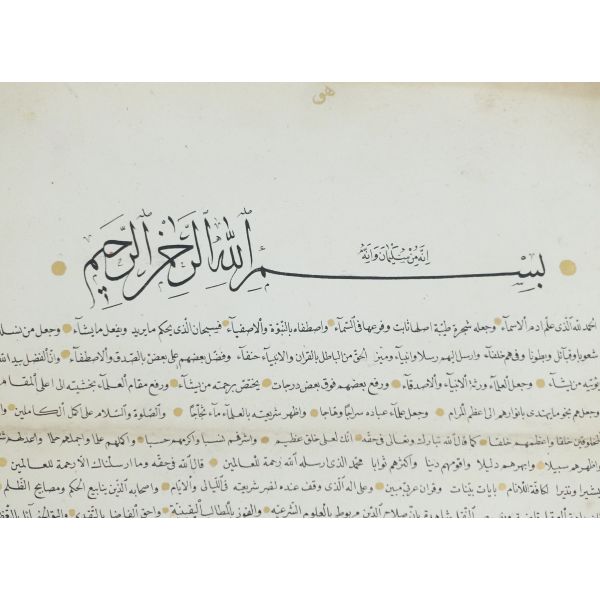 هو
انه من سليمان وانه
بسم الله الرحمن الرحيم
الحمد لله الذى علم ادم الاسماء وجعله شجرة طيبة اصلها ثابت وفرعها فى السماء واصطفاه بالنبوة والاصفياء فسبحان الذى يحكم ما يريد ويفعل ما يشاء وجعل من نسله
شعوبا وقبائل وبطونا وفى هم خلفاء وارسل لهم رسلا وانبياء وميز الحق من الباطل بالقران والانبياء حنفاء وفضل بعضهم على بعض بالصدق والاصطفاء وان الفضل بيد الله
يؤتيه من يشاء وجعل العلماء ورثة الانبياء والاصدقاء ورفع بعضهم فوق بعض درجات يختص برحمته من يشاء ورفع مقام العلماء بخشيته الى اعلى المقام
وجعلهم نجوما يهتدى بانوارهم الى اعظم المرام وجعل علماء عباده سراجا وهاجا واظهر شريعته بالعلماء ماء ثجاجا والصلوة والسلام على اكمل الكاملين
المخلوقين خلقا واعظمهم خلقا كما قال الله تبارك وتعالى فى حقه انك لعلى خلق عظيم واشرفهم نسبا واكرمهم حسبا واكملهم علما واجملهم حلما
واظهرهم سبيلا وابهرهم دليلا واقومهم دينا واكثرهم ثوابا محمد الذى ارسله الله رحمة للعالمين قال الله فى حقه وما ارسلناك الا رحمة للعالمين
بشيرا ونذيرا لكافة للانام بايات بينات وقران عربى مبين وعلى اله الذى وقف عنده لنصر شريعته فى الليالى والايام واصحابه الذين ينابيع الحكم ومصابيح الظلم
شاهدة بان صلاح الدين مربوط بالعلوم الشرعية والفوز بالمطالب اليقينية